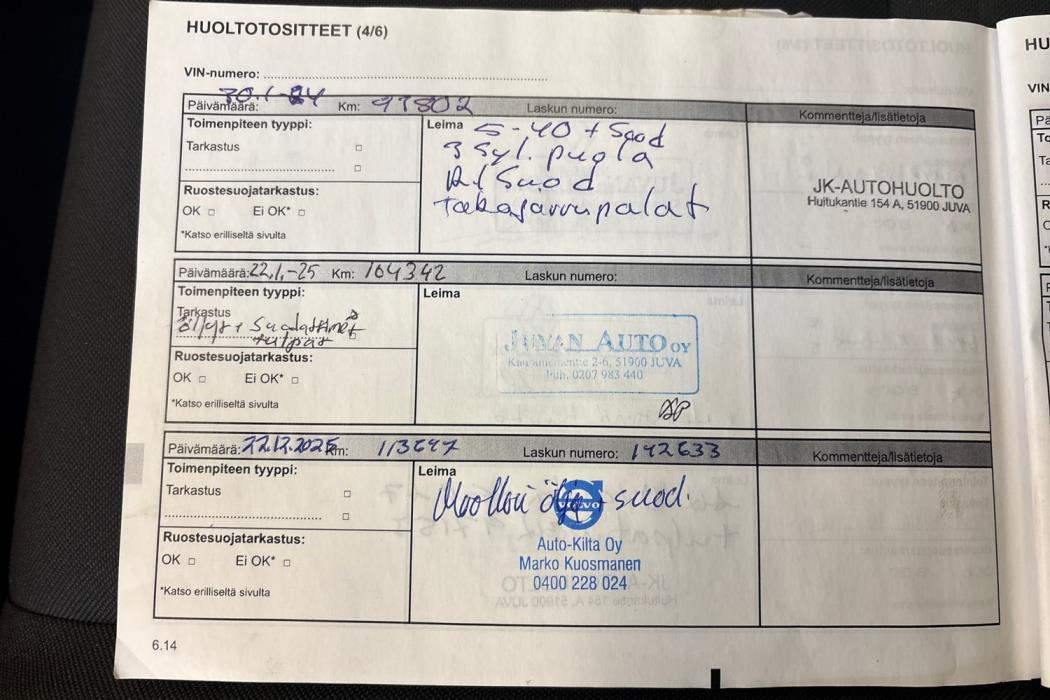 HUOLTOTOSITTEET (4/6)
VIN-numero:
Päivämäärä: 30.1-24 Km: 97802 Laskun numero:
Kommentteja/lisätietoja
Toimenpiteen tyyppi:
Tarkastus
Ruostesuojatarkastus:
OK Ei OK*
*Katso erilliseltä sivulta
Leima 5-40 + Suod
3 Syl. puola
R/Suod
takajarrupalat
JK-AUTOHUOLTO
Huitukantie 154 A, 51900 JUVA
Päivämäärä: 22.1.-25 Km: 104342 Laskun numero:
Kommentteja/lisätietoja
Toimenpiteen tyyppi:
Tarkastus
öljyt + Suodattimet
tulpat
Ruostesuojatarkastus:
OK Ei OK*
*Katso erilliseltä sivulta
Leima
JUVAN AUTO OY
2-6, 51900 JUVA
Puh. 0207 983 440
Päivämäärä: 22.12.2025 Km: 113697 Laskun numero: 142633
Kommentteja/lisätietoja
Toimenpiteen tyyppi:
Tarkastus
Ruostesuojatarkastus:
OK Ei OK*
*Katso erilliseltä sivulta
Leima
Moottori öljy + suod.
VOLVO
Auto-Kilta Oy
Marko Kuosmanen
0400 228 024
6.14
HU
VIN